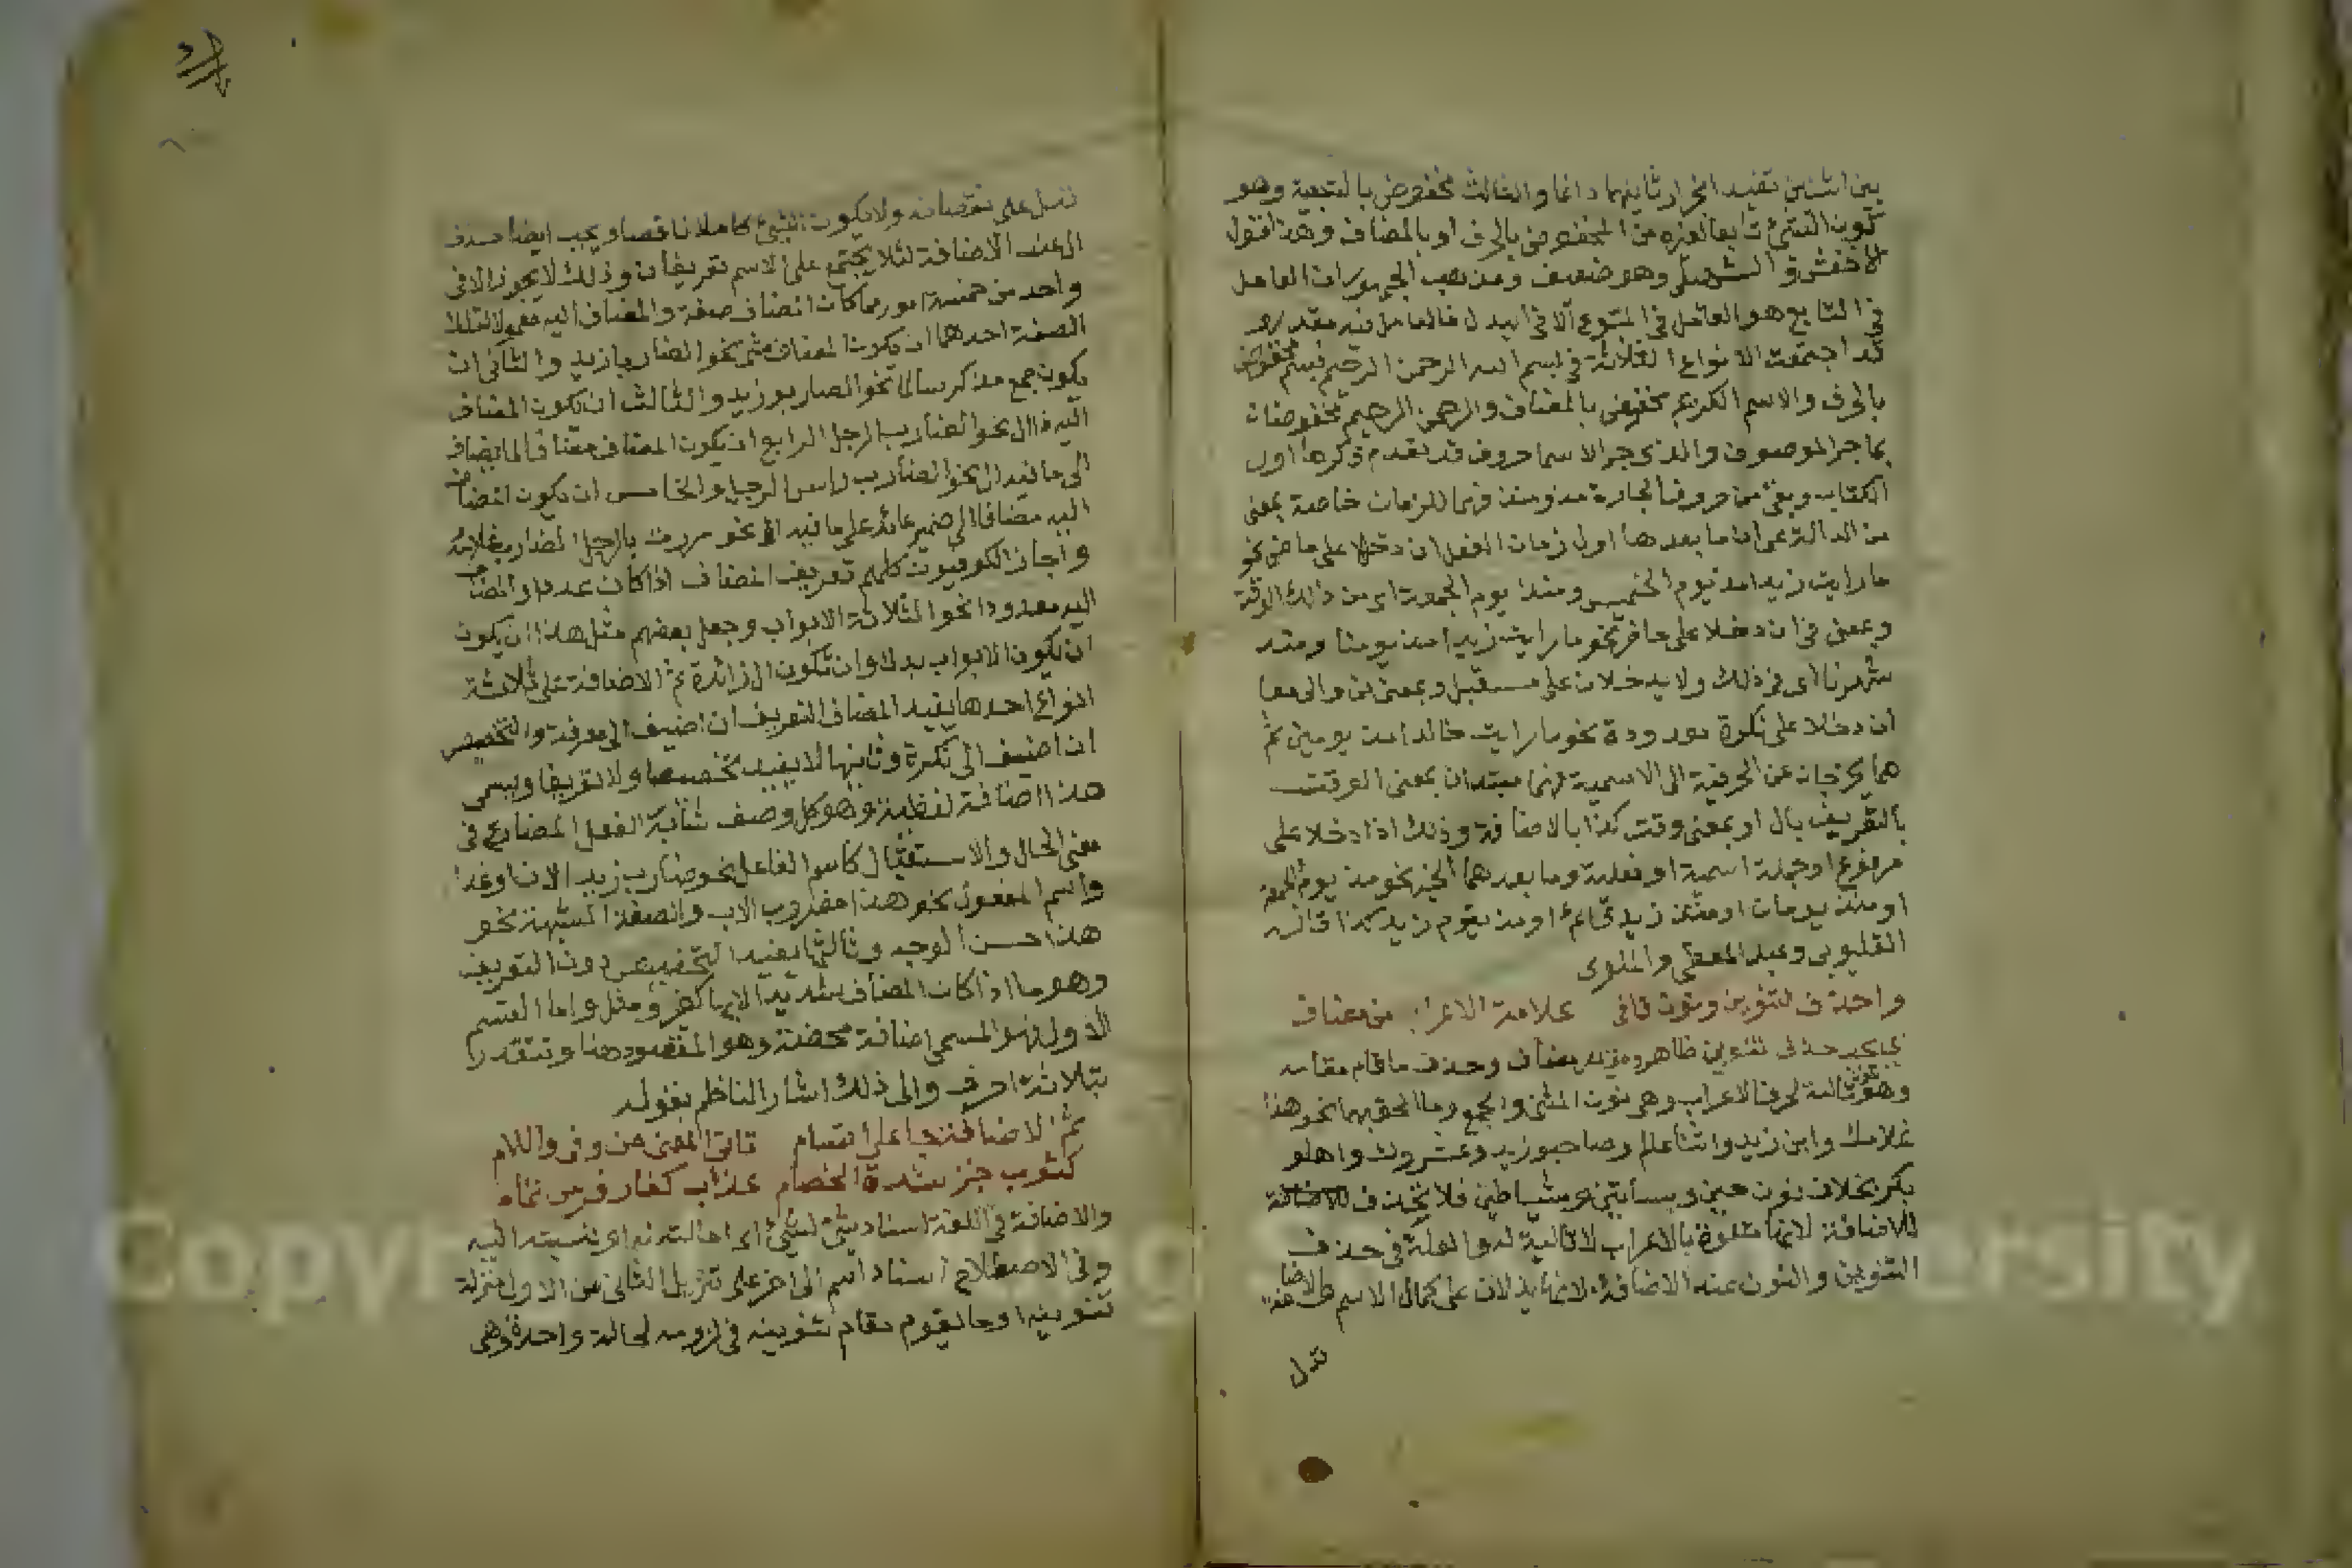 بين اثنين تقييد انجرار ثانيهما دائما والثالث مخفوض بالتبعية وهو
كون الشئ تابعا لغيره من المخفوض بالحرف او بالمضاف وهذا قول
الاخفش و السهيلي وهو ضعيف ومذهب الجمهور ان العامل
في التابع هو العامل في المتبوع الا في البدل فالعامل فيه مقدر وهو
قد اجتمعت الانواع الثلاثة في بسم الله الرحمن الرحيم فبسم مخفوض
بالحرف والاسم الكريم مخفوض بالمضاف والرحمن الرحيم مخفوضان
بما جر الموصوف والذي جر الاسما حروف قد تقدم ذكرها اول
الكتاب وبقي من حروف الجارة مذ ومنذ فهما للزمان خاصة بمعنى
من الدالة على ان ما بعدها اول زمان الفعل ان دخلا على ماض نحو
ما رايت زيدا مذ يوم الخميس ومنذ يوم الجمعة اي من ذلك الوقت
وبمعنى في ان دخلا على حاضر نحو ما رايت زيدا مذ يومنا ومنذ
شهرنا اي في ذلك ولا يدخلان على مستقبل وبمعنى من والى معا
ان دخلا على نكرة معدودة نحو ما رايت خالدا مذ يومين ثم
هما يخرجان عن الحرفية الى الاسمية فهما مبتدان بمعنى الوقت
بالتعريف بال او بمعنى وقت كذا بالاضافة وذلك اذا دخلا على
مرفوع او جملة اسمية او فعلية وما بعدهما الخبر نحو مذ يوم الجمعة
او منذ يومان او منذ زيد قائم او مذ يقوم زيد كذا قاله
القليوبي وعبد المعطي والملوي
واحذف لتنوين ونون قافي علامة الاعراب من مضاف
يجب حذف تنوين ظاهر ومقدر بمضاف وحذف ما قام مقامه
وهو نون تالية لحرف الاعراب وهي نون المثنى والجمع وما الحق بهما نحو هذا
غلامك وابن زيد واثنا علم وصاحبو زيد وعشروك واهلو
بكر بخلاف نون حين وبساتين وشياطين فلا تحذف للاضافة
للاضافة لانها متلوة بالاعراب لا تالية له والعلة في حذف
التنوين والنون عند الاضافة لانهما يدلان على كمال الاسم والاضافة
تدل
تدل على نقصانه ولا يكون الشئ كاملا ناقصا ويجب ايضا حذف
ال عند الاضافة لئلا يجتمع على الاسم تعريفان وذلك لا يجوز الا في
واحد من خمسة امور مما كان المضاف صفة والمضاف اليه معمولا لتلك
الصفة احدهما ان يكون المضاف مثنى نحو الضاربا زيد والثاني ان
يكون جمع مذكر سالما نحو الضاربو زيد والثالث ان يكون المضاف
اليه فال نحو الضارب الرجل الرابع ان يكون المضاف مضافا لما يضاف
الى ما فيه ال نحو الضارب راس الرجل والخامس ان يكون المضاف
اليه مضافا الى ضمير عائد على ما فيه ال نحو مررت بالرجل الضارب غلامه
واجاز الكوفيون كلهم تعريف المضاف اذا كان عددا والمضاف
اليه معدودا نحو الثلاثة الابواب وجعل بعضهم مثل هذا ان يكون
ان تكون الابواب بدلا وان تكون ال زائدة ثم الاضافة على ثلاثة
انواع احدها يفيد المضاف التعريف ان اضيف الى معرفة والتخصيص
ان اضيف الى نكرة وثانيها لا يفيد تخصيصا ولا تعريفا ويسمى
هذا اضافة لفظية وهو كل وصف شابه الفعل المضارع في
معنى الحال والاستقبال كاسم الفاعل نحو ضارب زيد الان او غدا
واسم المفعول نحو هذا مضروب الاب والصفة المشبهة نحو
هذا حسن الوجه وثالثها يفيد التخصيص دون التعريف
وهو ما اذا كان المضاف شديد الابهام كغير ومثل واما القسم
الاول فهو المسمى اضافة محضة وهو المقصود هنا وتتقدر
بثلاثة احرف والى ذلك اشار الناظم بقوله
ثم الاضافة جا على اقسام تاتي المعنى من وفي واللام
كثوب خز شدة الخصام عذاب كفار فرس تمام
والاضافة في اللغة اسناد شئ لشئ اي امالته له اي نسبته اليه
وفي الاصطلاح اسناد اسم الى اخر على تنزيل الثاني من الاول منزلة
تنوينه او ما يقوم مقام تنوينه في لزومه لحالة واحدة وهي